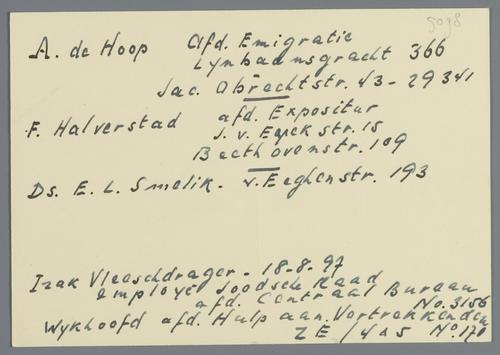 5098
A. de Hoop afd. Emigratie
Lynbaansgracht 366
Jac. Obrechtstr. 43 - 29341
F. Halverstad afd. Expositur
J. v. Eyck str. 15
Beethovenstr. 109
Ds. E. L. Smelik. v. Eeghenstr. 193
Izak Vleeschdrager - 18-8-97
employé Joodsche Raad
afd. Centraal Bureau
No. 3156
Wykhoofd afd. Hulp aan Vertrekkenden
ZE / 4 a 5 No 170